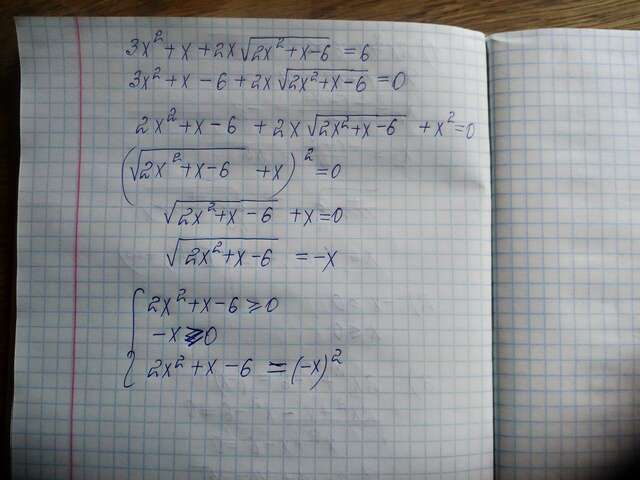 3x² + x + 2x√(2x² + x - 6) = 6
3x² + x - 6 + 2x√(2x² + x - 6) = 0
2x² + x - 6 + 2x√(2x² + x - 6) + x² = 0
(√(2x² + x - 6) + x)² = 0
√(2x² + x - 6) + x = 0
√(2x² + x - 6) = -x
{ 2x² + x - 6 ≥ 0
-x ≥ 0
2x² + x - 6 = (-x)²